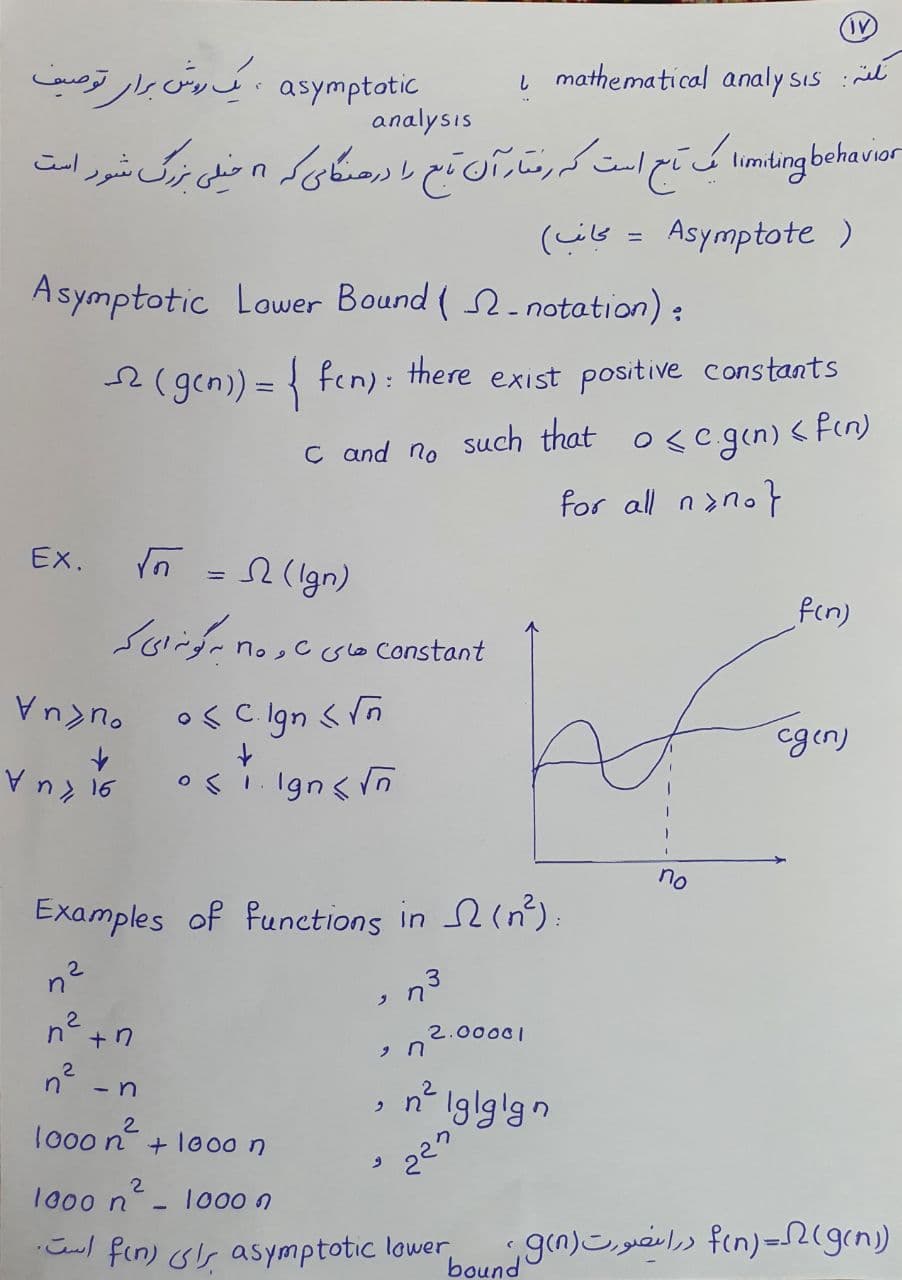 ۱۷
نکته: mathematical analysis یا asymptotic analysis، یک روش برای توصیف
limiting behavior یک تابع است که رفتار آن تابع را در هنگامی که n خیلی بزرگ شود است
(مجانب = Asymptote)
Asymptotic Lower Bound (Ω-notation):
Ω(g(n)) = { f(n): there exist positive constants
c and n₀ such that 0 ⩽ c.g(n) ⩽ f(n)
for all n ⩾ n₀ }
Ex. √n = Ω(lgn)
constant های c و n₀ به گونه ای که
∀n ⩾ n₀ 0 ⩽ c.lgn ⩽ √n
↓ ↓
∀n ⩾ 16 0 ⩽ 1.lgn ⩽ √n
f(n)
cg(n)
n₀
Examples of functions in Ω(n²):
n² , n³
n² + n , n^2.00001
n² - n , n² lglglgn
1000n² + 1000n , 2^2^n
1000n² - 1000n
f(n) = Ω(g(n)) در اینصورت g(n)، asymptotic lower bound برای f(n) است.